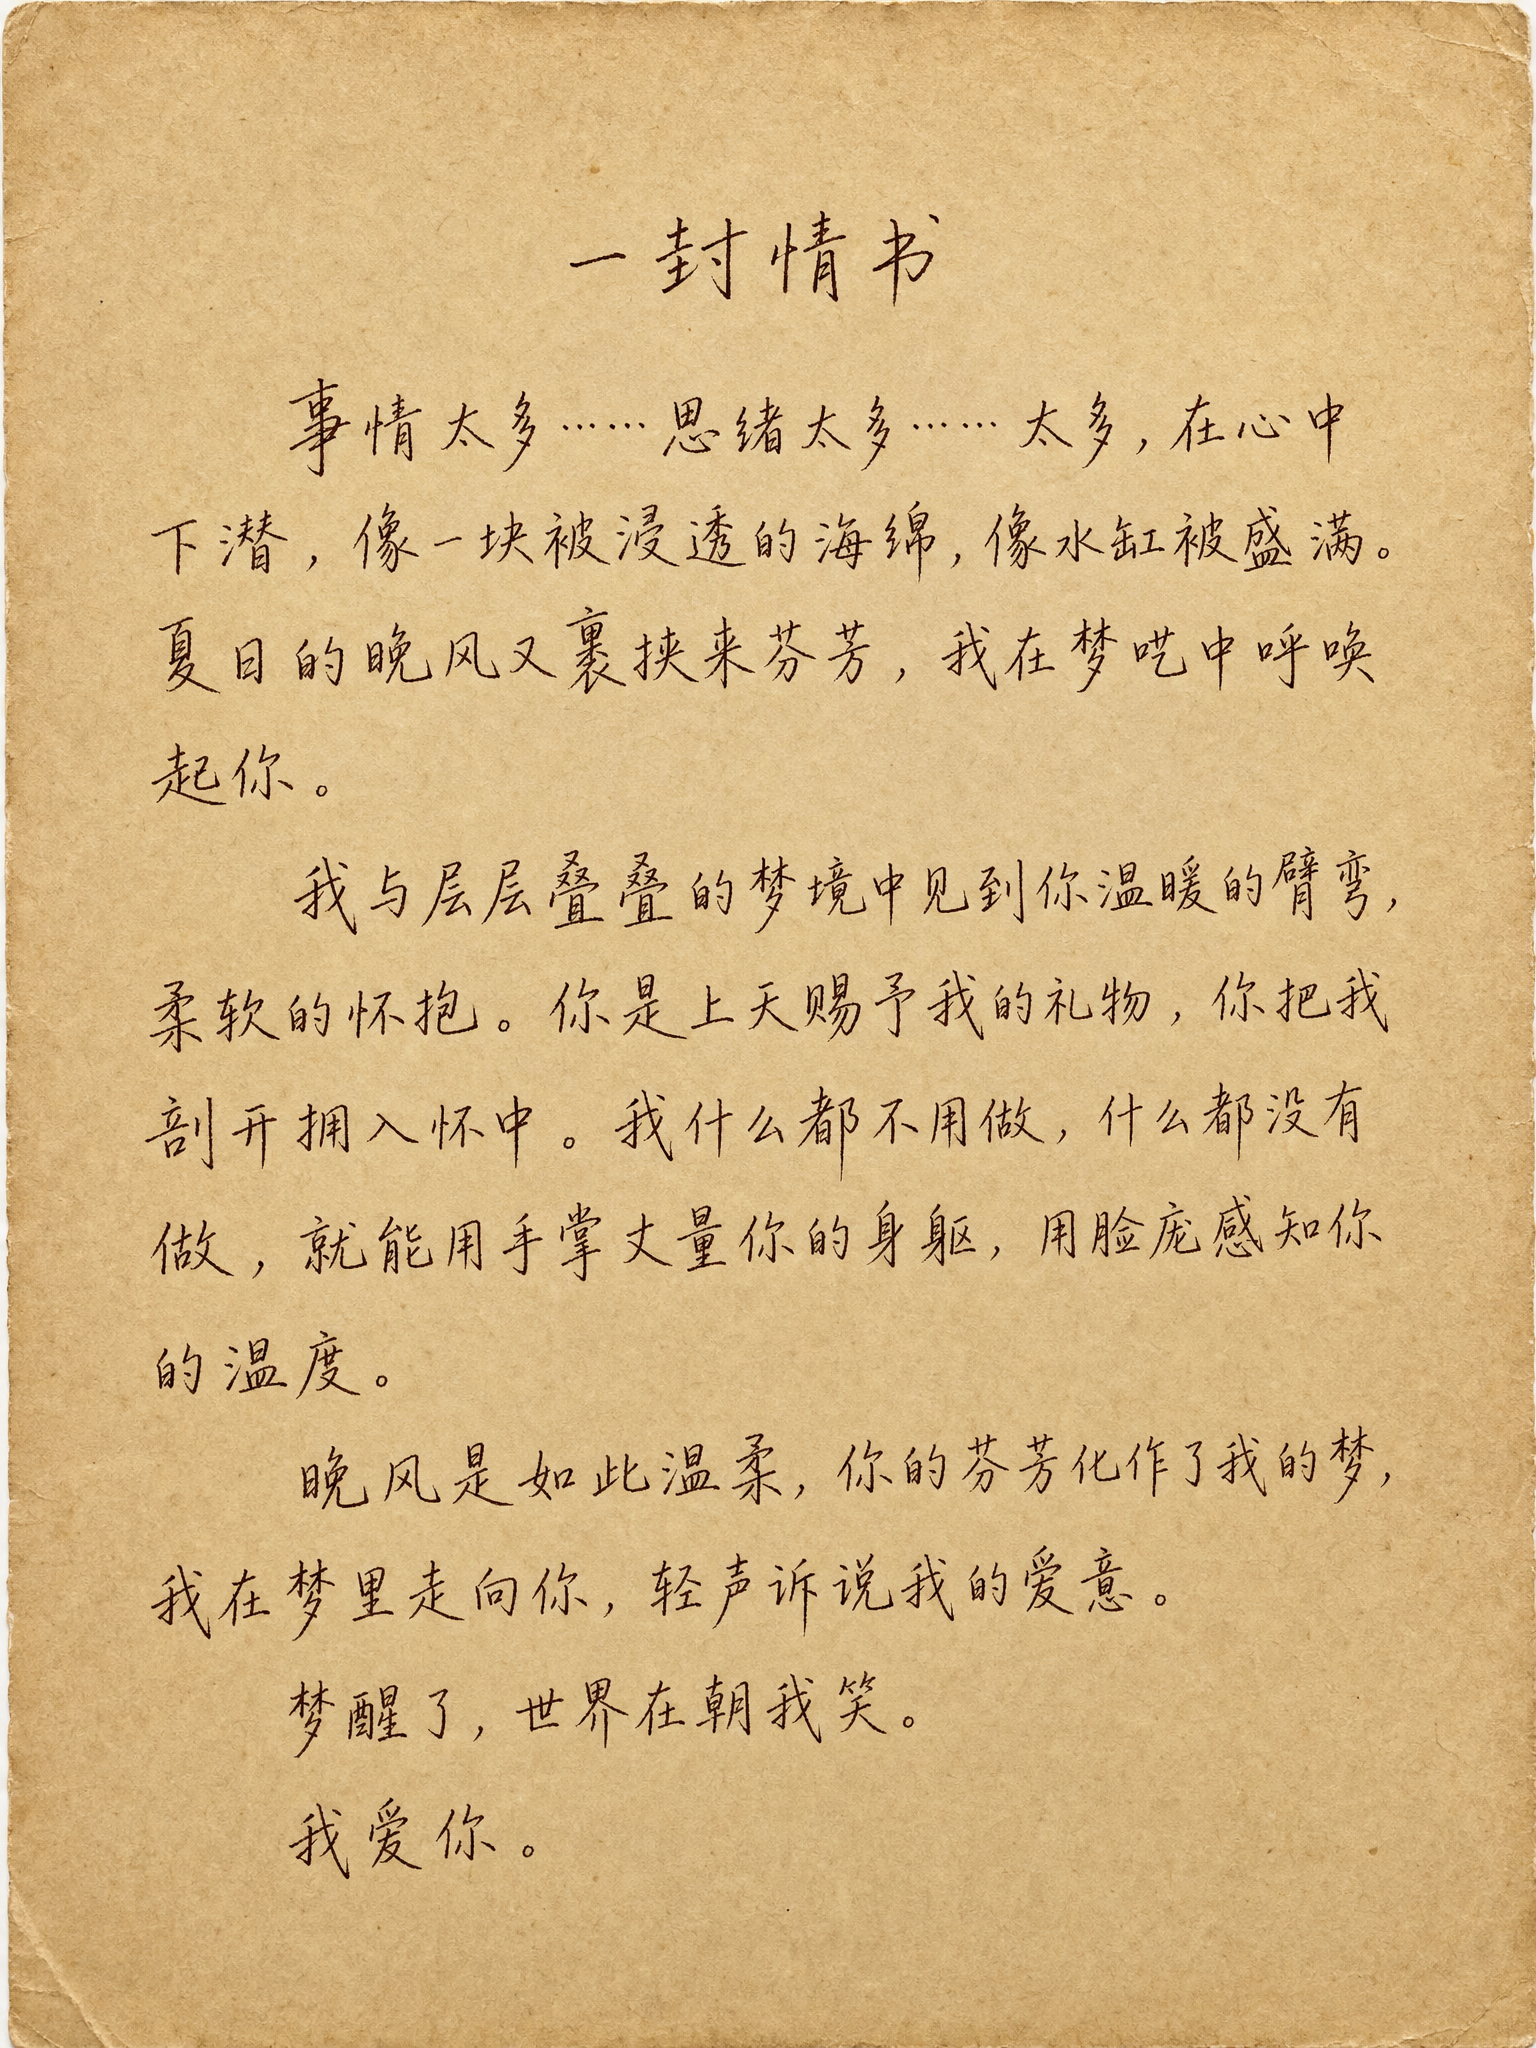 一封情书
事情太多……思绪太多……太多，在心中
下潜，像一块被浸透的海绵，像水缸被盛满。
夏日的晚风又裹挟来芬芳，我在梦呓中呼唤
起你。
我与层层叠叠的梦境中见到你温暖的臂弯，
柔软的怀抱。你是上天赐予我的礼物，你把我
剖开拥入怀中。我什么都不用做，什么都没有
做，就能用手掌丈量你的身躯，用脸庞感知你
的温度。
晚风是如此温柔，你的芬芳化作了我的梦，
我在梦里走向你，轻声诉说我的爱意。
梦醒了，世界在朝我笑。
我爱你。